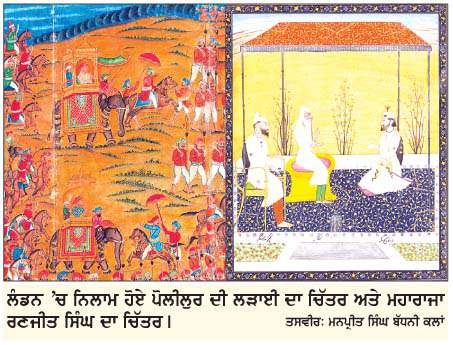 ਲੰਡਨ 'ਚ ਨਿਲਾਮ ਹੋਏ ਪੋਲੀਲੁਰ ਦੀ ਲੜਾਈ ਦਾ ਚਿੱਤਰ ਅਤੇ ਮਹਾਰਾਜਾ
ਰਣਜੀਤ ਸਿੰਘ ਦਾ ਚਿੱਤਰ।
ਤਸਵੀਰ: ਮਨਪ੍ਰੀਤ ਸਿੰਘ ਬੱਧਨੀ ਕਲਾਂ